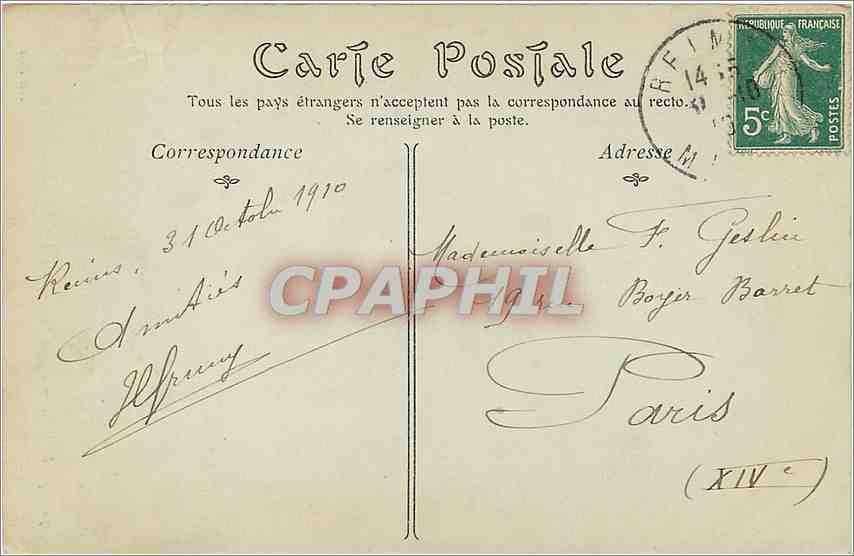 Carte Postale
Tous les pays étrangers n'acceptent pas la correspondance au recto.
Se renseigner à la poste.
Correspondance
Adresse
RÉPUBLIQUE FRANÇAISE
5c
POSTES
REIM
14
Reims, 31 Octobre 1910
Amitiés
Mademoiselle F. Geslin
19 rue Boyer Barret
Paris
(XIVe)
CPAPHIL